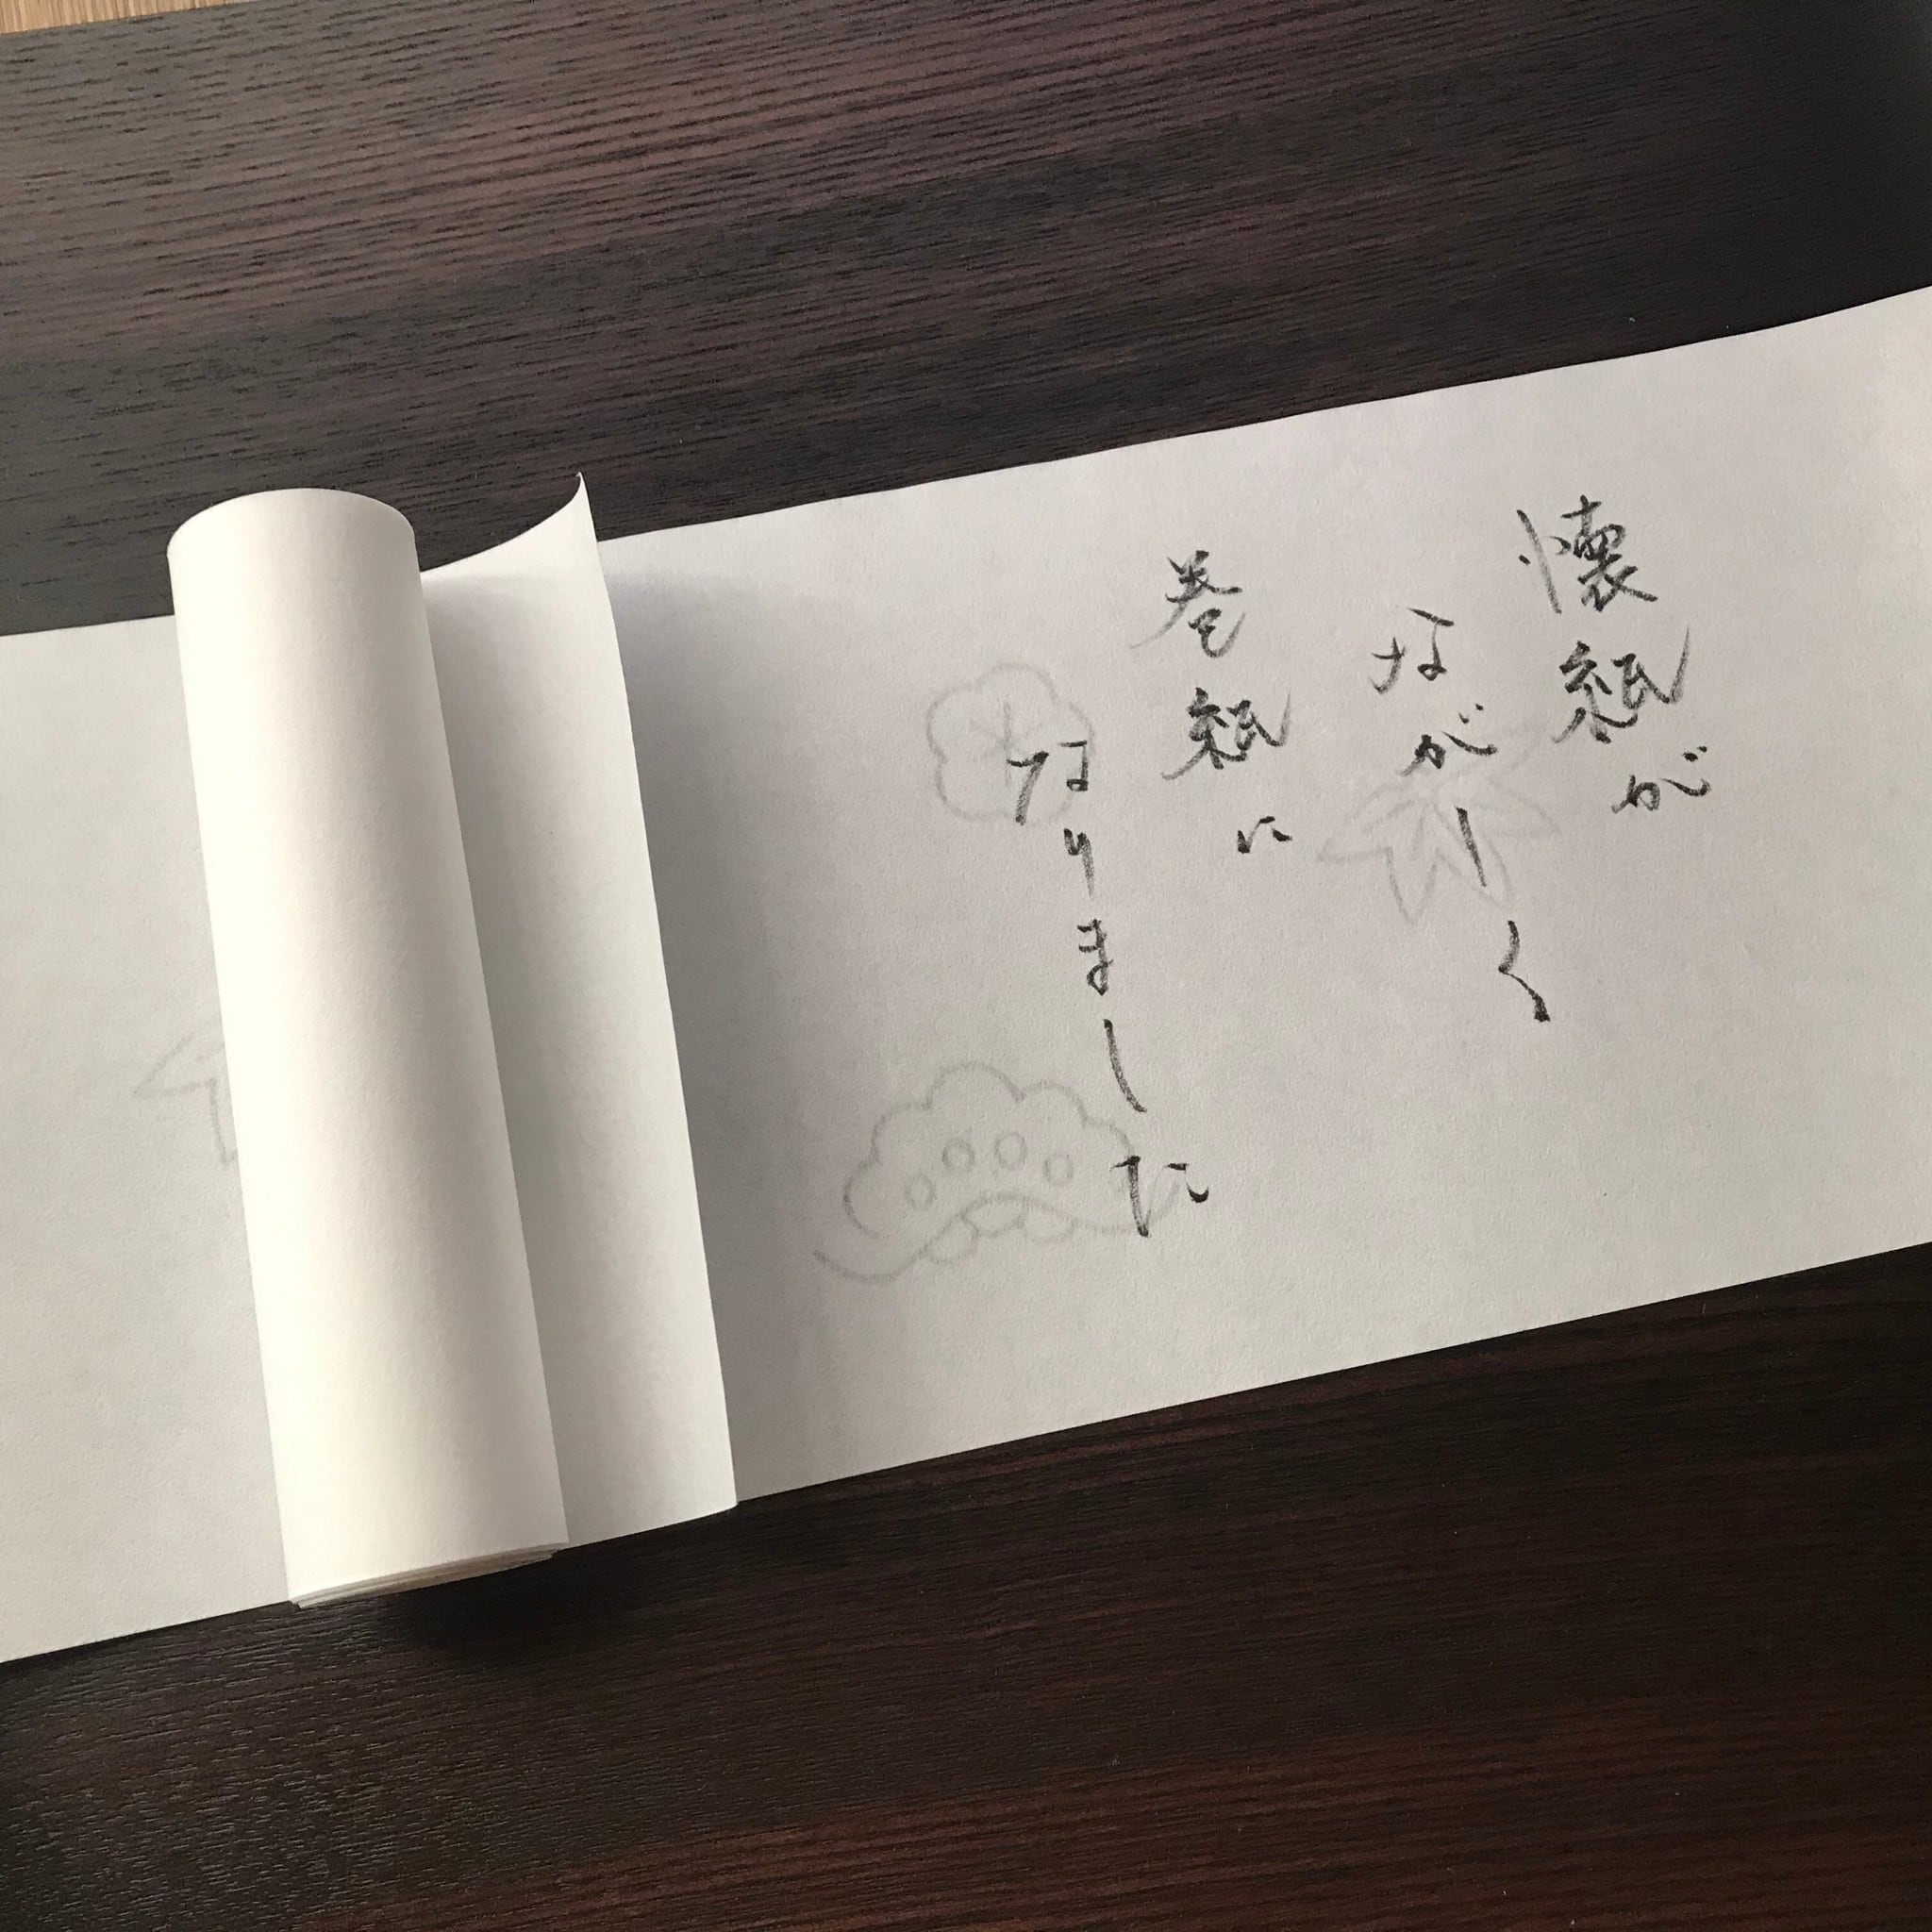 懐紙が
ながーく
巻紙に
なりました